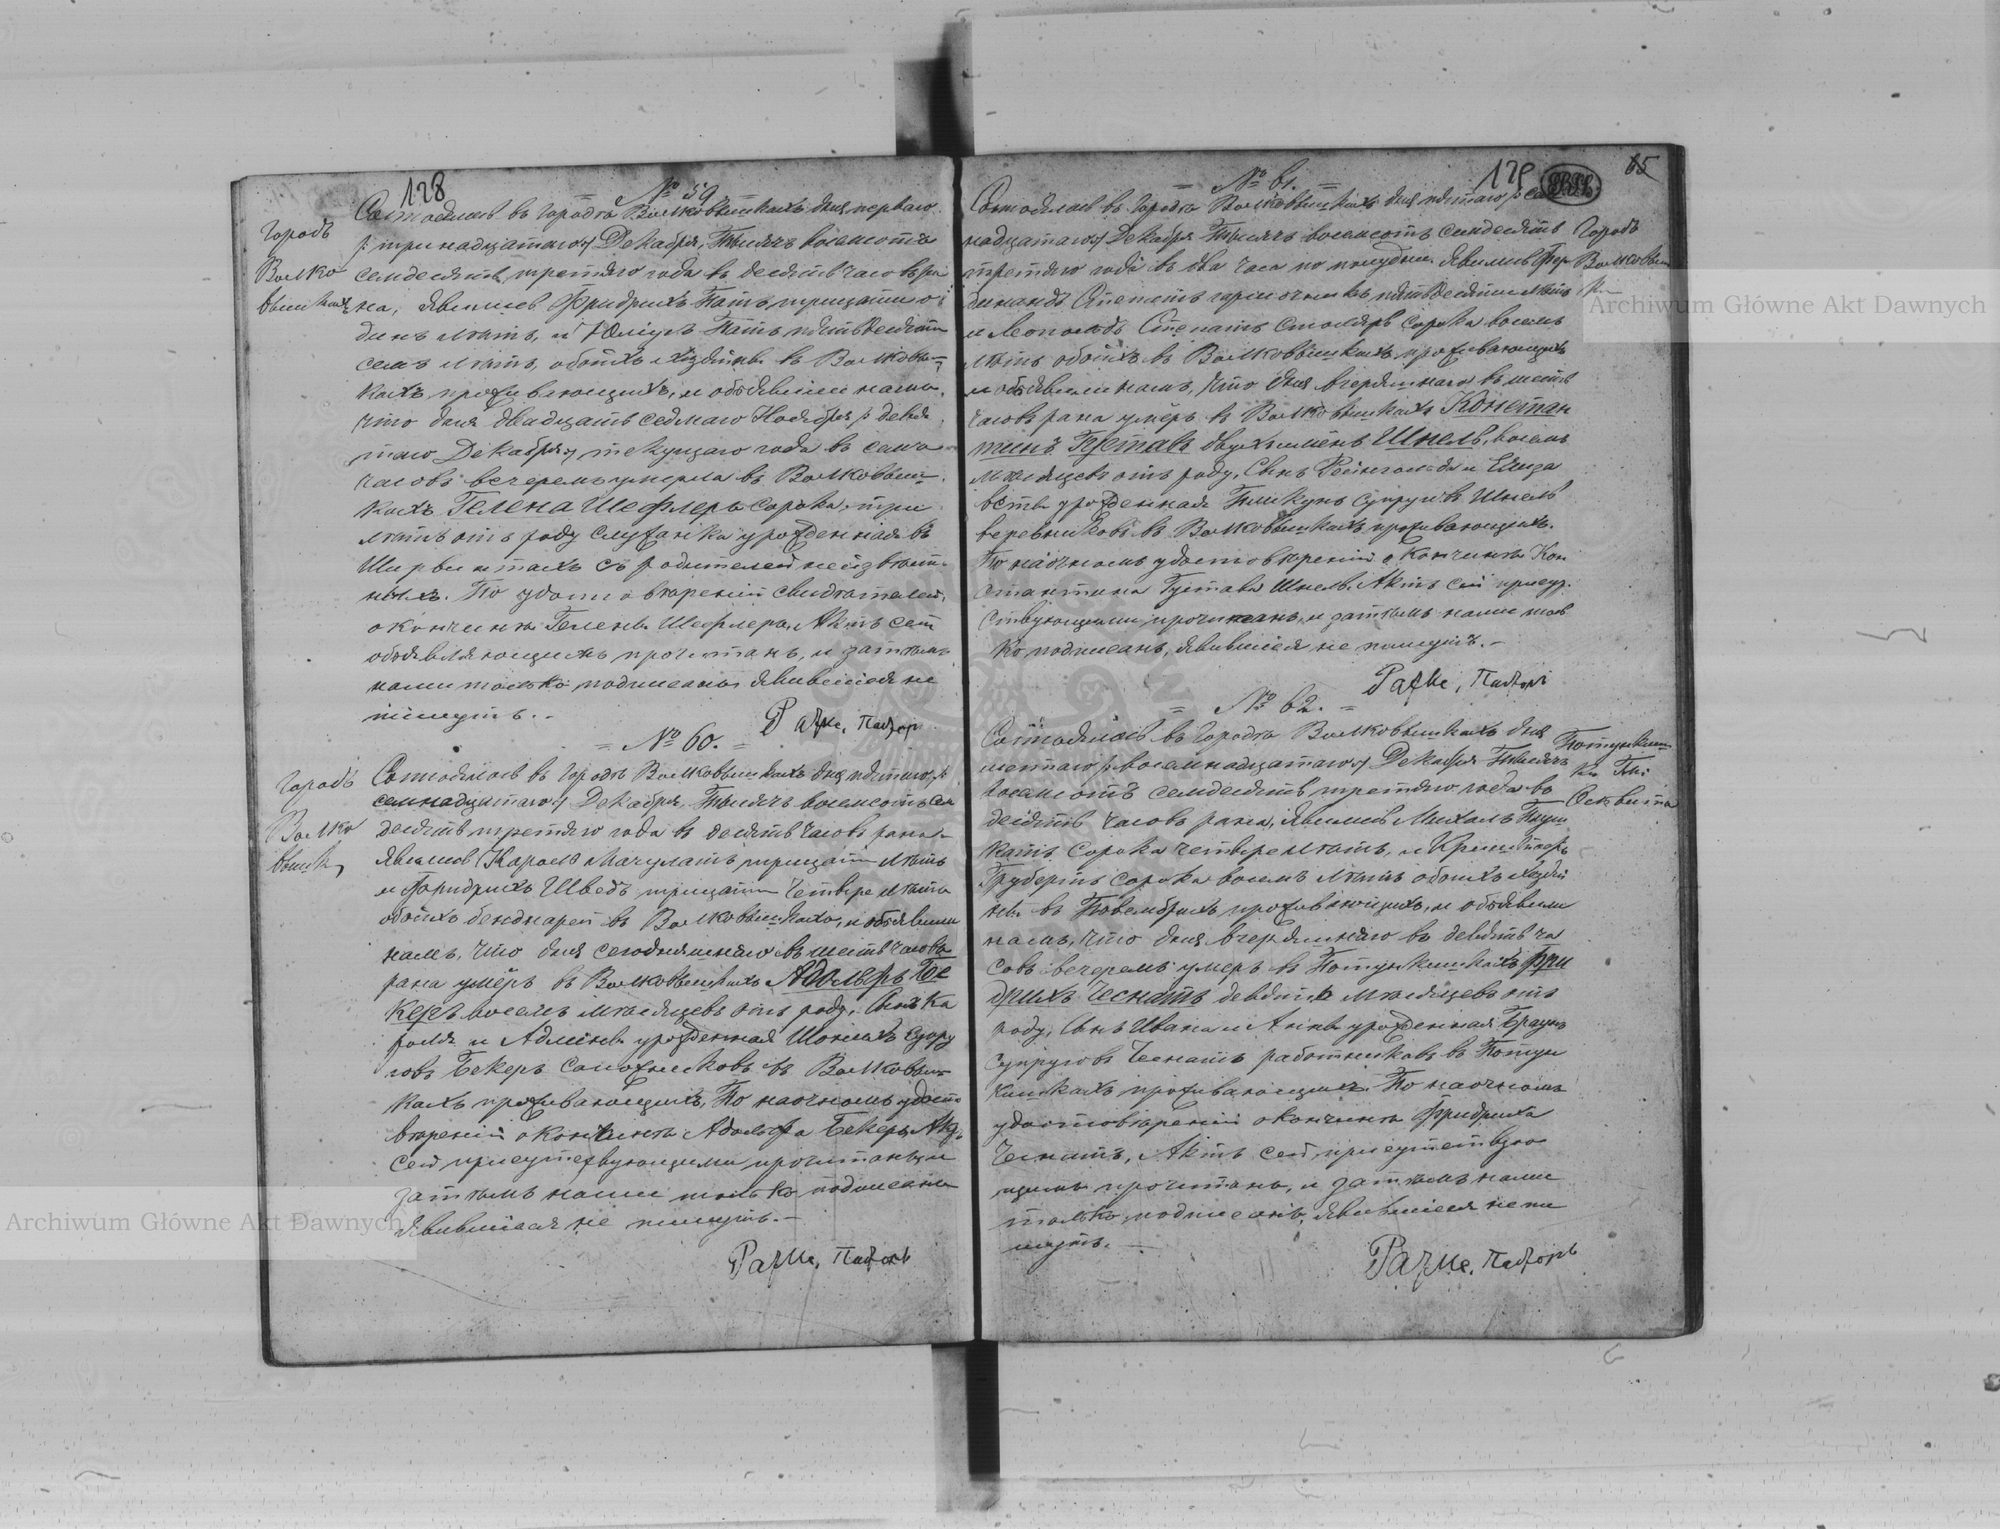 128
№ 59
Городъ
Волко
вышки
Состоялось въ городѣ Волковышкахъ дня перваго
/: тринадцатаго :/ Декабря, Тысяча восемсотъ
семдесятъ третьяго года въ десять часовъ ра
на, явились Фридрихъ Патъ, тридцати о
динъ лѣтъ, и Юліусъ Патъ пятьдесяти
семъ лѣтъ, обоихъ хозяины въ Волковыш
кахъ проживающихъ, и объявили намъ,
что дня двадцать седмаго Ноября /: девя
таго Декабря :/ текущаго года въ семъ
часовъ вечеромъ умерла въ Волковыш
кахъ Гелена Шефлеръ сорока три
лѣтъ отъ роду служанка урожденная въ
Ширвинтахъ съ родителей неизвѣст
ныхъ. По удостовѣреніи свидѣтелей,
о кончинѣ Гелены Шефлеръ, Актъ сей
объявляющимъ прочитанъ, и затѣмъ
нами только подписанъ явившіеся не
пишутъ. –
Ратке, Пасторъ
= № 60. =
Городъ
Волко
вышк,
Состоялось въ городѣ Волковышкахъ дня пятаго /:
семнадцатаго :/ Декабря, Тысяча восемсотъ сем
десятъ третьяго года въ десять часовъ рана
явились Кароль Мачулатъ, тридцати лѣтъ
и Фридрихъ Шведъ тридцати четыре лѣта
обоихъ бенднарей въ Волковышкахъ, и объявили
намъ, что дня сегодняшняго въ шесть часовъ
рана умеръ въ Волковышкахъ Адольфъ Бе
керъ восемъ мѣсяцевъ отъ роду, Сынъ Ка
роля и Админы урожденная Шонъ супру
говъ Бекеръ сапожниковъ въ Волковыш
кахъ проживающихъ, По наочномъ удосто
вѣреніи о кончинѣ Адольфа Бекеръ, Актъ
сей присутствующими прочитанъ, и
затѣмъ нами только подписанъ
явившіеся не пишутъ. –
Ратке, Пасторъ
129
65
= № 61. =
Городъ
Волковыш
Состоялось въ городѣ Волковышкахъ дня пятаго /: сем
надцатаго :/ Декабря Тысяча восемсотъ семдесятъ
третьяго года въ два часа по полудни. Явились Фер
динандъ Степатъ пятьдесяти лѣтъ
и Леопольдъ Степатъ столяръ сорока восемъ
лѣтъ обоихъ въ Волковышкахъ проживающихъ
и объявили намъ, что дня вчерашняго въ шесть
часовъ рана умеръ въ Волковышкахъ Констан
тинъ Густавъ двухъ именъ Шнель, восемъ
мѣсяцевъ отъ роду, Сынъ Рейнгольда и Елиза
веты урожденная супруговъ Шнель
въ Волковышкахъ проживающихъ.
По наочномъ удостовѣреніи о кончинѣ Кон
стантина Густава Шнель, Актъ сей присут
ствующими прочитанъ, и затѣмъ нами толь
ко подписанъ, явившіеся не пишутъ. –
Ратке, Пасторъ
= № 62. =
Состоялось въ городѣ Волковышкахъ дня
шестаго /: восемнадцатаго :/ Декабря Тысяча
восемсотъ семдесятъ третьяго года въ
десять часовъ рана, явились Михаль
сорока четыре лѣтъ, и
Грубертъ сорока восемъ лѣтъ обоихъ хозяи
ны въ проживающихъ, и объявили
намъ, что дня вчерашняго въ девять ча
совъ вечеромъ умеръ въ Фри
дрихъ Чеснатъ девять мѣсяцевъ отъ
роду, Сынъ Ивана и Анны урожденная Браунъ
супруговъ Чеснатъ работниковъ въ
проживающихъ. По наочномъ
удостовѣреніи о кончинѣ Фридриха
Чеснатъ, Актъ сей присутствую
щимъ прочитанъ, и затѣмъ нами
только подписанъ, явившіеся не пи
шутъ. –
Ратке, Пасторъ
Archiwum Główne Akt Dawnych
Archiwum Główne Akt Dawnych